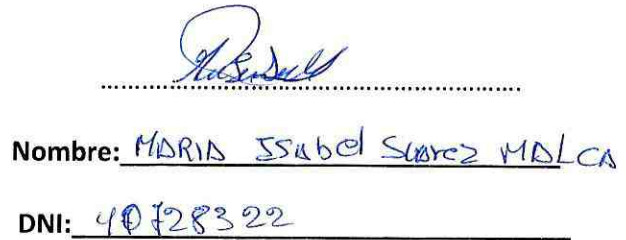 Nombre: MARIA ISabel Suarez MALCA
DNI: 40728322